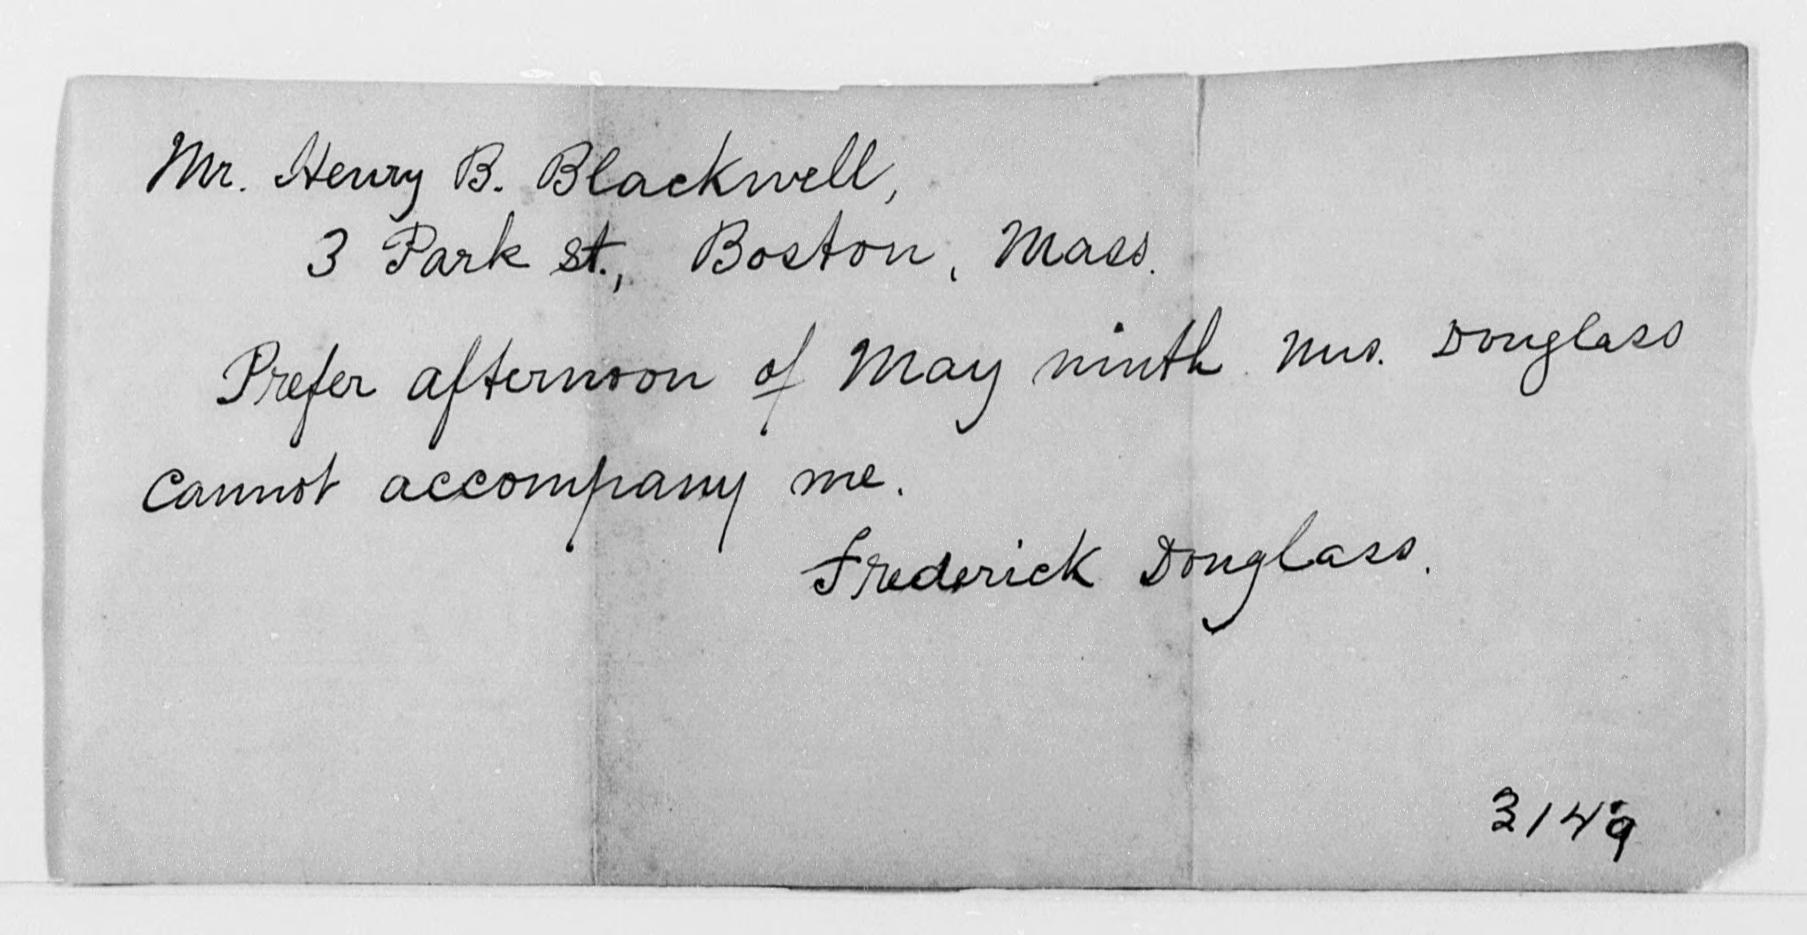 Mr. Henry B. Blackwell,
3 Park St., Boston, Mass.
Prefer afternoon of May ninth. Mrs. Douglass
cannot accompany me.
Frederick Douglass.
3149